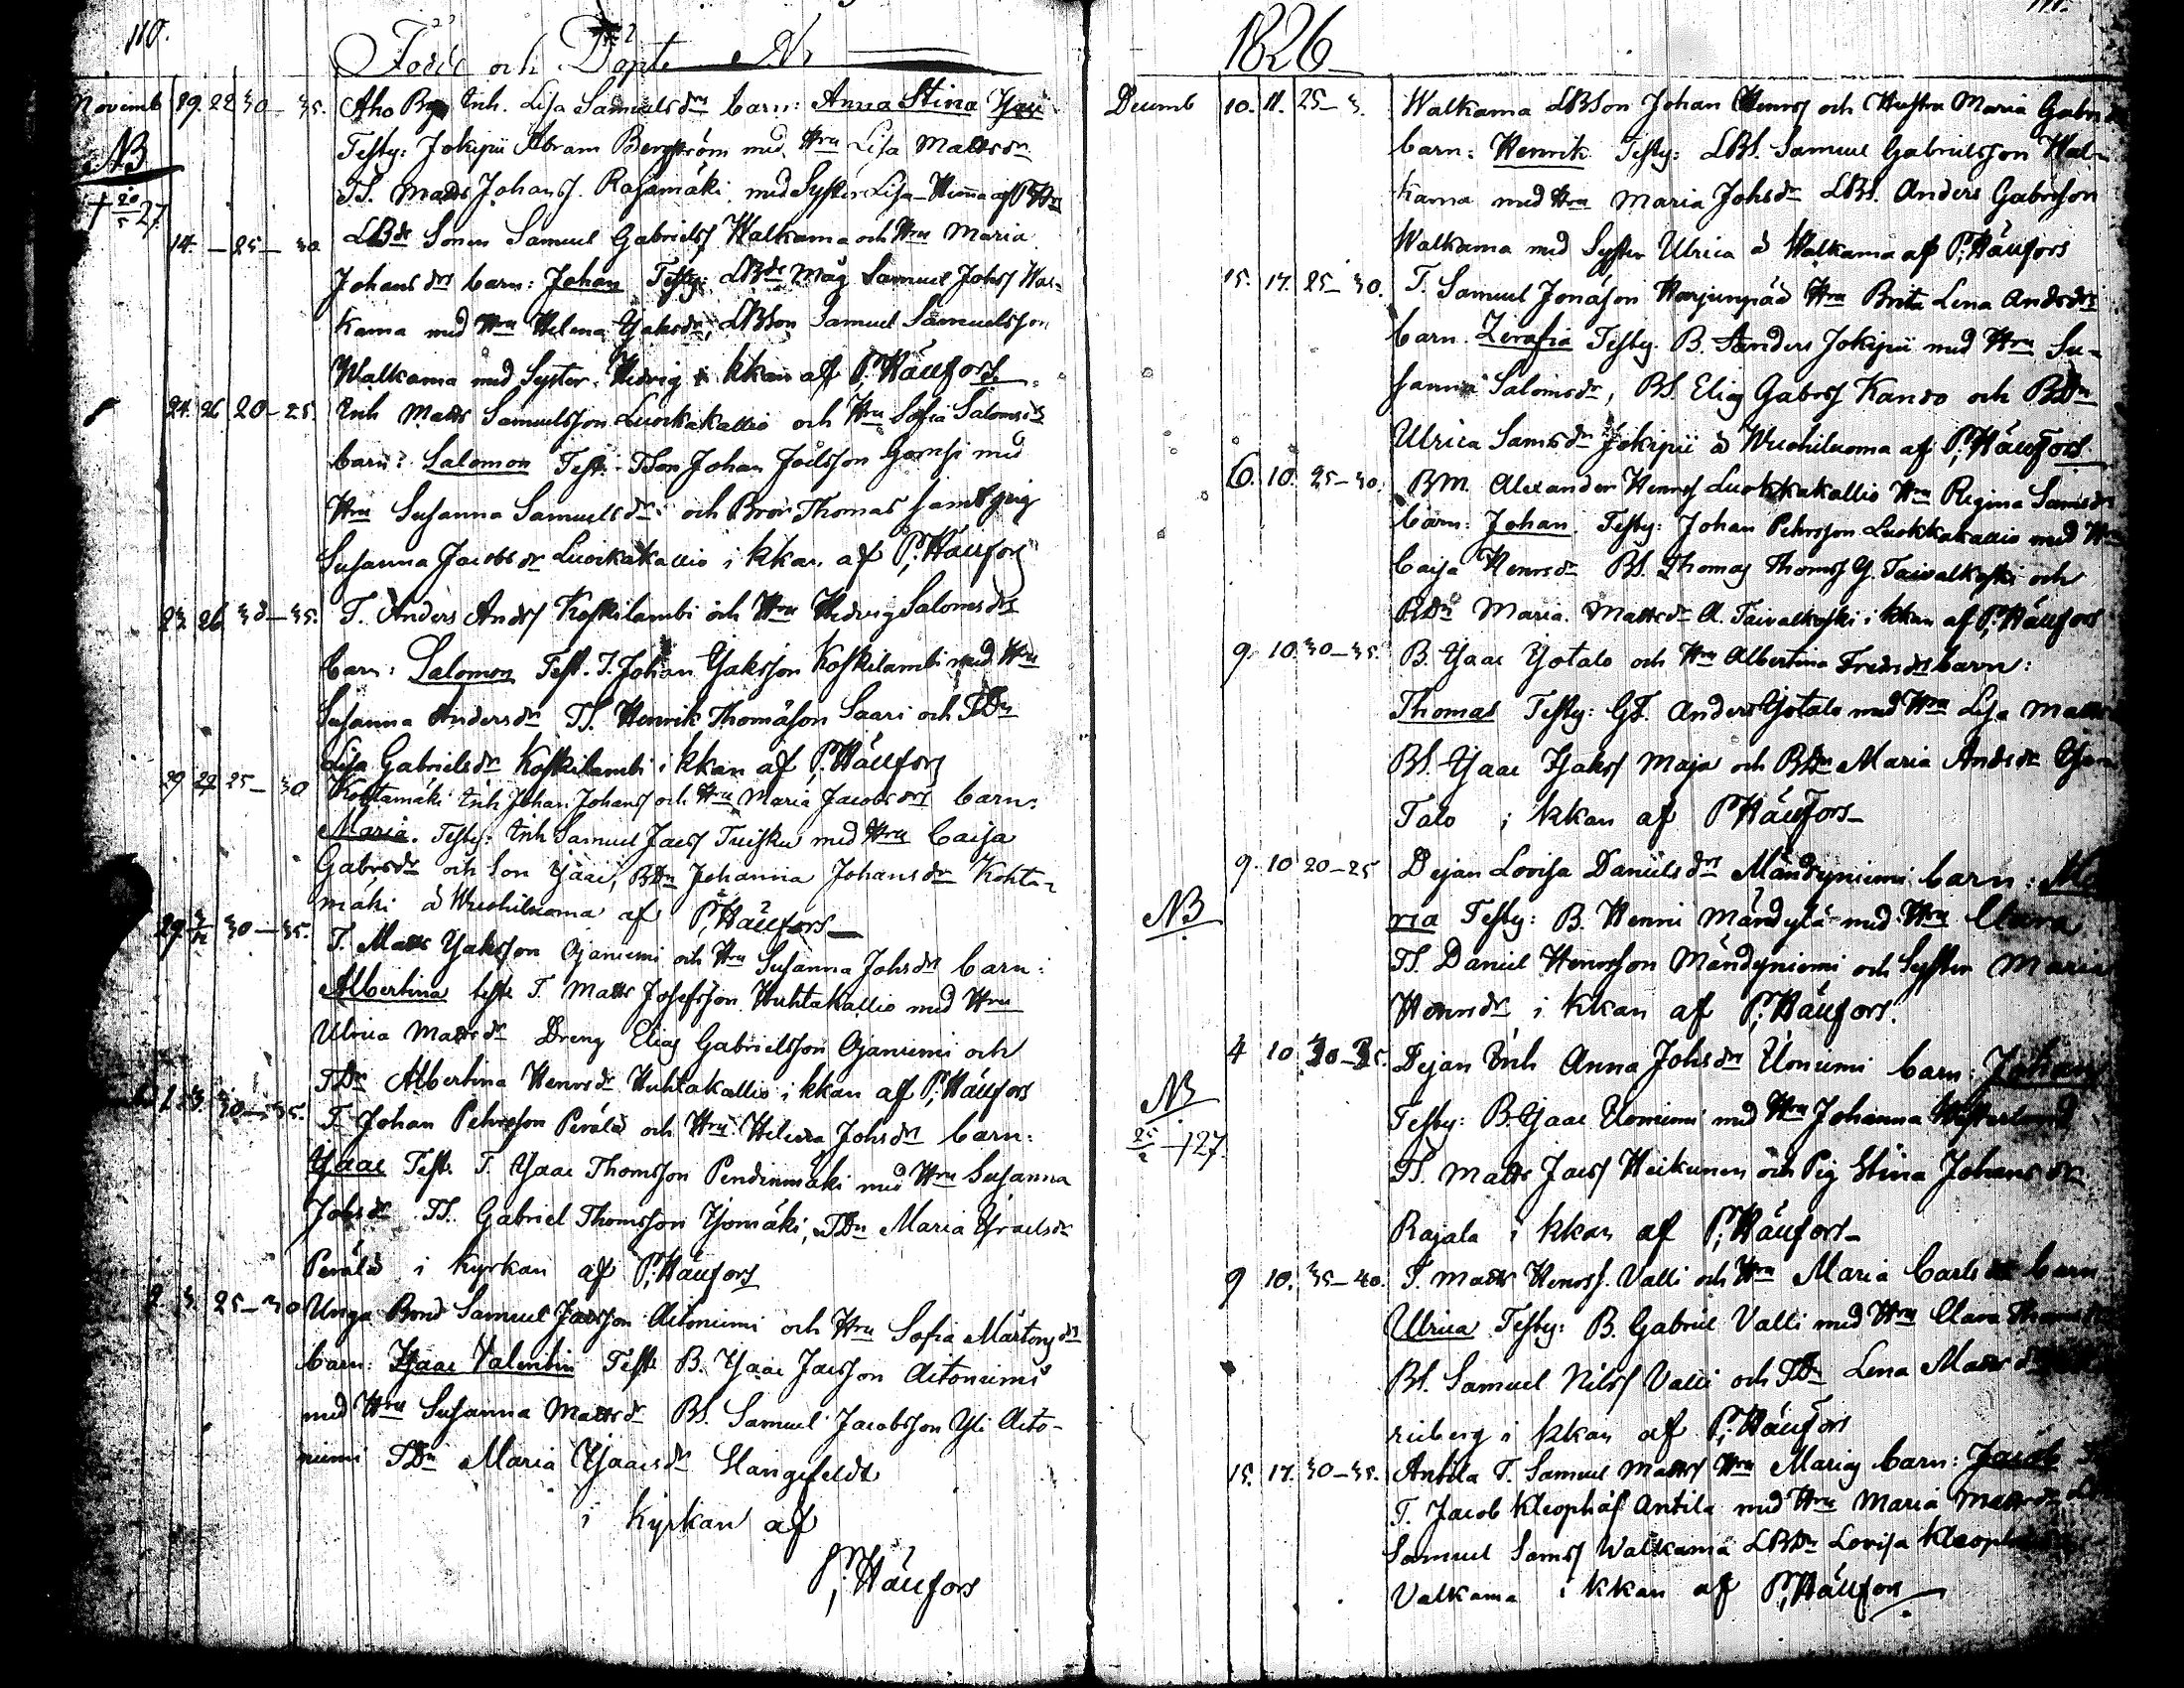 110.
Födde och Döpte År
Novemb 19. 22 30–35. Aho By Inh. Lisa Samuelsdrs barn: Anna Stina
Testes: Jokipii Abram Bergström med Hru Lisa Mattsdr
TS. Matts Johanss. Rajamäki med Syster Lisa
NB
† 20/5 27.
14. – 25– 30. LBde Sonen Samuel Gabrielss Walkama och Hru Maria
Johansdrs barn: Johan Testes: LBde Måg Samuel Johss Wal-
kama med Hru Helena Isaksdr, LBSon Samuel Samuelsson
Walkama med Syster Hedvig i kkan af P. Häufors
24. 26 20–25. Inh Matts Samuelsson Luokakallio och Hru Sofia Salomsdrs
barn: Salomon Test. TSon Johan Joelsson Gornsi med
Hru Susanna Samuelsdr och Bror Thomas samt pig
Susanna Jacobsdr Luokakallio i kkan af P. Häufors
23. 26 30–35. T. Anders Andss Koskilambi och Hru Hedvig Salomsdrs
barn: Salomon Test. T. Johan Isaksson Koskilambi med Hru
Susanna Andersdr TS. Henrik Thomasson Saari och TDr
Lisa Gabrielsdr Koskilambi i kkan af P. Häufors
29 29 25–30 Kohtamäki Inh Johan Johanss och Hru Maria Jacobsdrs barn:
Maria. Testes: Inh Samuel Jacss Tuisku med Hru Caisa
Gabrsdr och Son Isaac, BDr Johanna Johansdr Kohta-
mäki å Wuohiluoma af P. Häufors
29. 3/12 30–35. T. Matts Isaksson Ojaniemi och Hru Susanna Johsdrs barn:
Albertina teste T. Matts Josefsson Huhtakallio med Hru
Ulrica Mattsdr Dreng Elias Gabrielsson Ojaniemi och
TDr Albertina Henrsdr Huhtakallio i kkan af P. Häufors
1. 3. 30–35. T. Johan Pehrsson Perälä och Hru Helena Johsdrs barn:
Isaac Test. T. Isaac Thomsson Pendinmäki med Hru Susanna
Johsdr TS. Gabriel Thomsson Isomäki, TDr Maria Israelsdr
Perälä i kyrkan af P. Häufors
2 3. 25–30 Unga Bond Samuel Jacsson Aitoniemi och Hru Sofia Mårtensdrs
barn: Isaac Valentin Test B. Isaac Jacsson Aitoniemi
med Hru Susanna Mattsdr BS. Samuel Jacobsson Yli Aito-
niemi TDr Maria Isaacsdr Hangefeldt
i kyrkan af
P. Häufors
1826
Decemb 10. 11. 25–3. Walkama LBSon Johan Henrss och Hustru Maria Gabr
barn: Henrik Testes: LBS. Samuel Gabrielsson Wal-
kama med Hru Maria Johsdr LBS. Anders Gabrsson
Walkama med Syster Ulrica å Walkama af P. Häufors
15. 17. 25–30. T. Samuel Jonasson Harjunpää Hru Brita Lena Andsdrs
barn. Zerafia Testes. B. Anders Jokipii med Hru Su-
sanna Salomsdr, BS. Elias Gabrss Kando och BDr
Ulrica Samsdr Jokipii å Wuohiluoma af P. Häufors
6. 10. 25–30. BM. Alexander Henrss Luokkakallio Hru Regina Samsdrs
barn: Johan. Testes: Johan Pehrsson Luokkakallio med Hru
Caisa Henrsdr BS. Thomas Thomss Y. Taivalkoski och
BDr Maria Mattsdr A. Taivalkoski i kkan af P. Häufors
9. 10. 30–35. B. Isaac Isotalo och Hru Albertina Fredrsdrs barn:
Thomas Testes: GF. Anders Isotalo med Hru Lisa Matts
BS. Isaac Isakss Maja och BDr Maria Andsdr
Talo i kkan af P. Häufors
9. 10 20–25 Pejan Lovisa Danielsdrs Mändyniemi barn: Ma-
NB
ria Testes: B. Henric Mändylä med Hru Clara
TS. Daniel Henrsson Mändyniemi och Syster Maria
Henrsdr i kkan af P. Häufors.
4 10 30–35. Pejan Inh Anna Johsdrs Uoniemi barn: Johan
NB
25/2 †27.
Testes: B. Isaac Uoniemi med Hru Johanna Westerlund
TS. Matts Jacss Heikunen och Pig Stina Johansdr
Rajala i kkan af P. Häufors
9 10. 35–40. T. Matts Henrss. Valli och Hru Maria Carlsdrs barn
Ulrica Testes: B. Gabriel Valli med Hru Clara
BS. Samuel Nilss Valli och TDr Lena Matts
rieberg i kkan af P. Häufors
15. 17. 30–35. Antila T. Samuel Mattss Hru Marias barn: Jacob
T. Jacob Kleophass Antila med Hru Maria Mattsdr
Samuel Samss Walkama LBDr Lovisa Kleoph
Valkama i kkan af P. Häufors